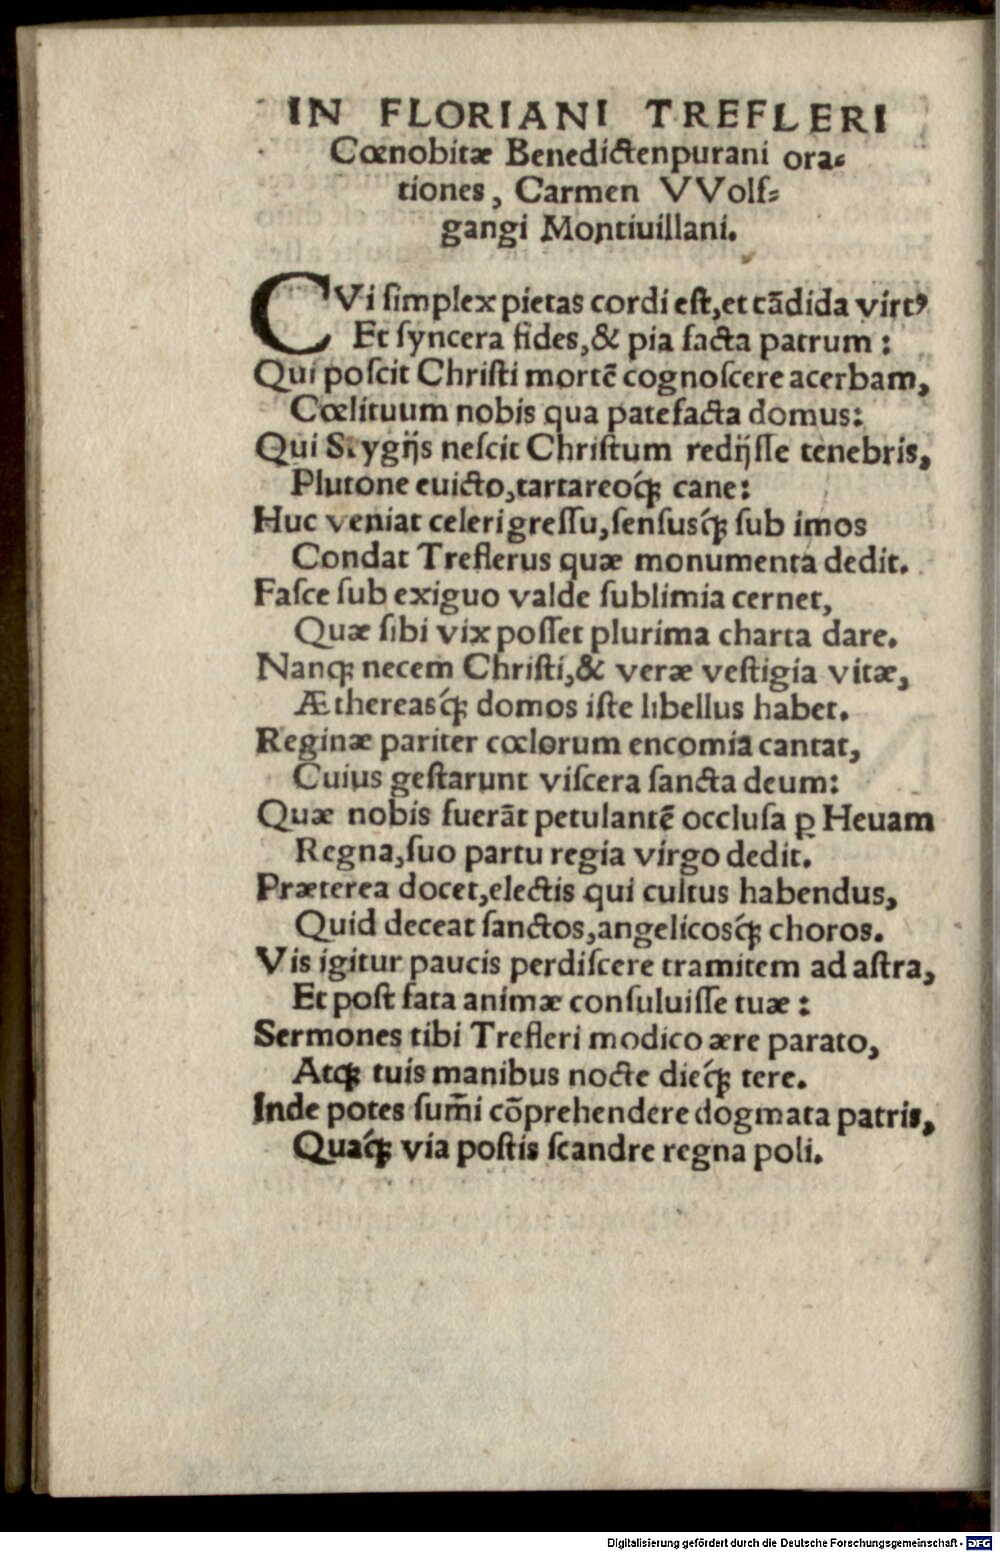 IN FLORIANI TREFLERI
Cœnobitæ Benedictenpurani ora⸗
tiones, Carmen VVolf⸗
gangi Montiuillani.
CVi ſimplex pietas cordi eſt, et cãdida virtꝰ
Et ſyncera fides, & pia facta patrum:
Qui poſcit Chriſti mortẽ cognoſcere acerbam,
Cœlituum nobis qua patefacta domus:
Qui Stygijs neſcit Chriſtum redijſſe tenebris,
Plutone euicto, tartareoq́ꝫ cane:
Huc veniat celeri greſſu, ſenſusq́ꝫ ſub imos
Condat Treflerus quæ monumenta dedit.
Faſce ſub exiguo valde ſublimia cernet,
Quæ ſibi vix poſſet plurima charta dare.
Nanqꝫ necem Chriſti, & veræ veſtigia vitæ,
Æthereasq́ꝫ domos iſte libellus habet.
Reginæ pariter cœlorum encomia cantat,
Cuius geſtarunt viſcera ſancta deum:
Quæ nobis fuerãt petulantẽ occluſa ꝑ Heuam
Regna, ſuo partu regia virgo dedit.
Præterea docet, electis qui cultus habendus,
Quid deceat ſanctos, angelicosq́ꝫ choros.
Vis igitur paucis perdiſcere tramitem ad aſtra,
Et poſt fata animæ conſuluiſſe tuæ:
Sermones tibi Trefleri modico ære parato,
Atqꝫ tuis manibus nocte dieq́ꝫ tere.
Inde potes ſum̃i cõprehendere dogmata patris,
Quaq́ꝫ via poſtis ſcandre regna poli.
Digitalisierung gefördert durch die Deutsche Forschungsgemeinschaft - DFG